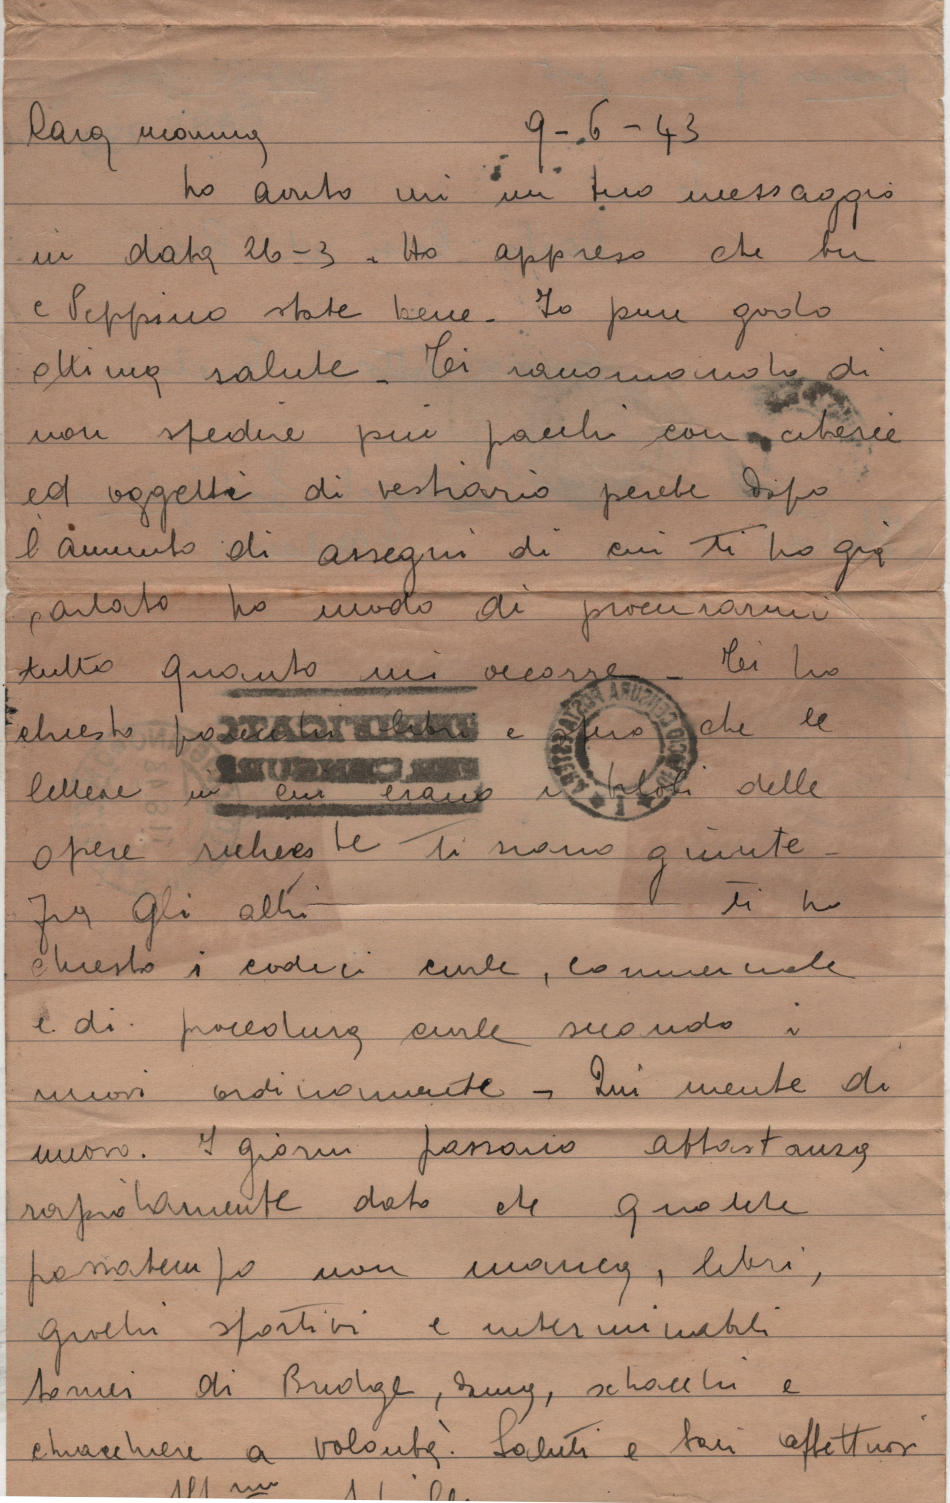 Cara mamma 9-6-43
ho avuto ieri un tuo messaggio
in data 26-3. Ho appreso che tu
e Peppino state bene. Io pure godo
ottima salute. Ti raccomando di
non spedire più pacchi con ciberie
ed oggetti di vestiario perchè dopo
l'aumento di assegni di cui ti ho già
parlato ho modo di procurarmi
tutto quanto mi occorre. Ti ho
chiesto parecchi libri e spero che le
lettere in cui erano i titoli delle
opere richieste ti siano giunte.
Fra gli altri ti ho
chiesto i codici civile, commerciale
e di procedura civile secondo i
nuovi ordinamenti. Qui niente di
nuovo. I giorni passano abbastanza
rapidamente dato che qualche
passatempo non manca, libri,
giochi sportivi e interminabili
tornei di Bridge, dama, schacchi e
chiacchiere a volontà. Saluti e baci affettuosi
VERIFICATO
PER CENSURA
UFFICIO CENSURA POSTALE ESTERA
1